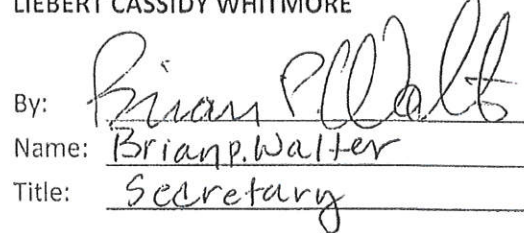 LIEBERT CASSIDY WHITMORE
By: Brian P. Walter
Name: Brian P. Walter
Title: Secretary